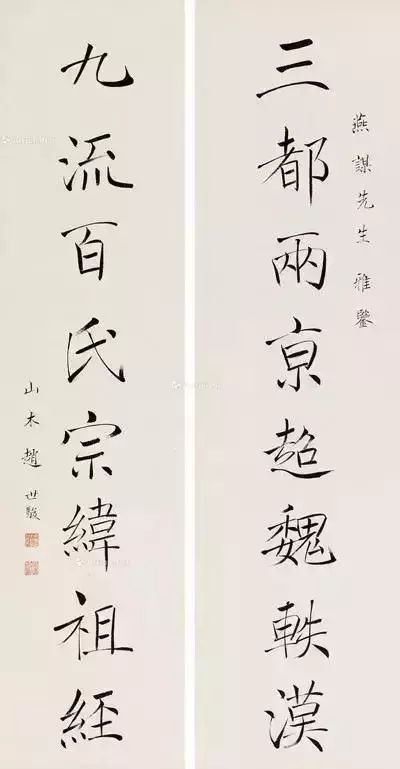 燕謀先生 雅鑒
三都兩京超魏軼漢
九流百氏宗緯祖經
山木趙世駿